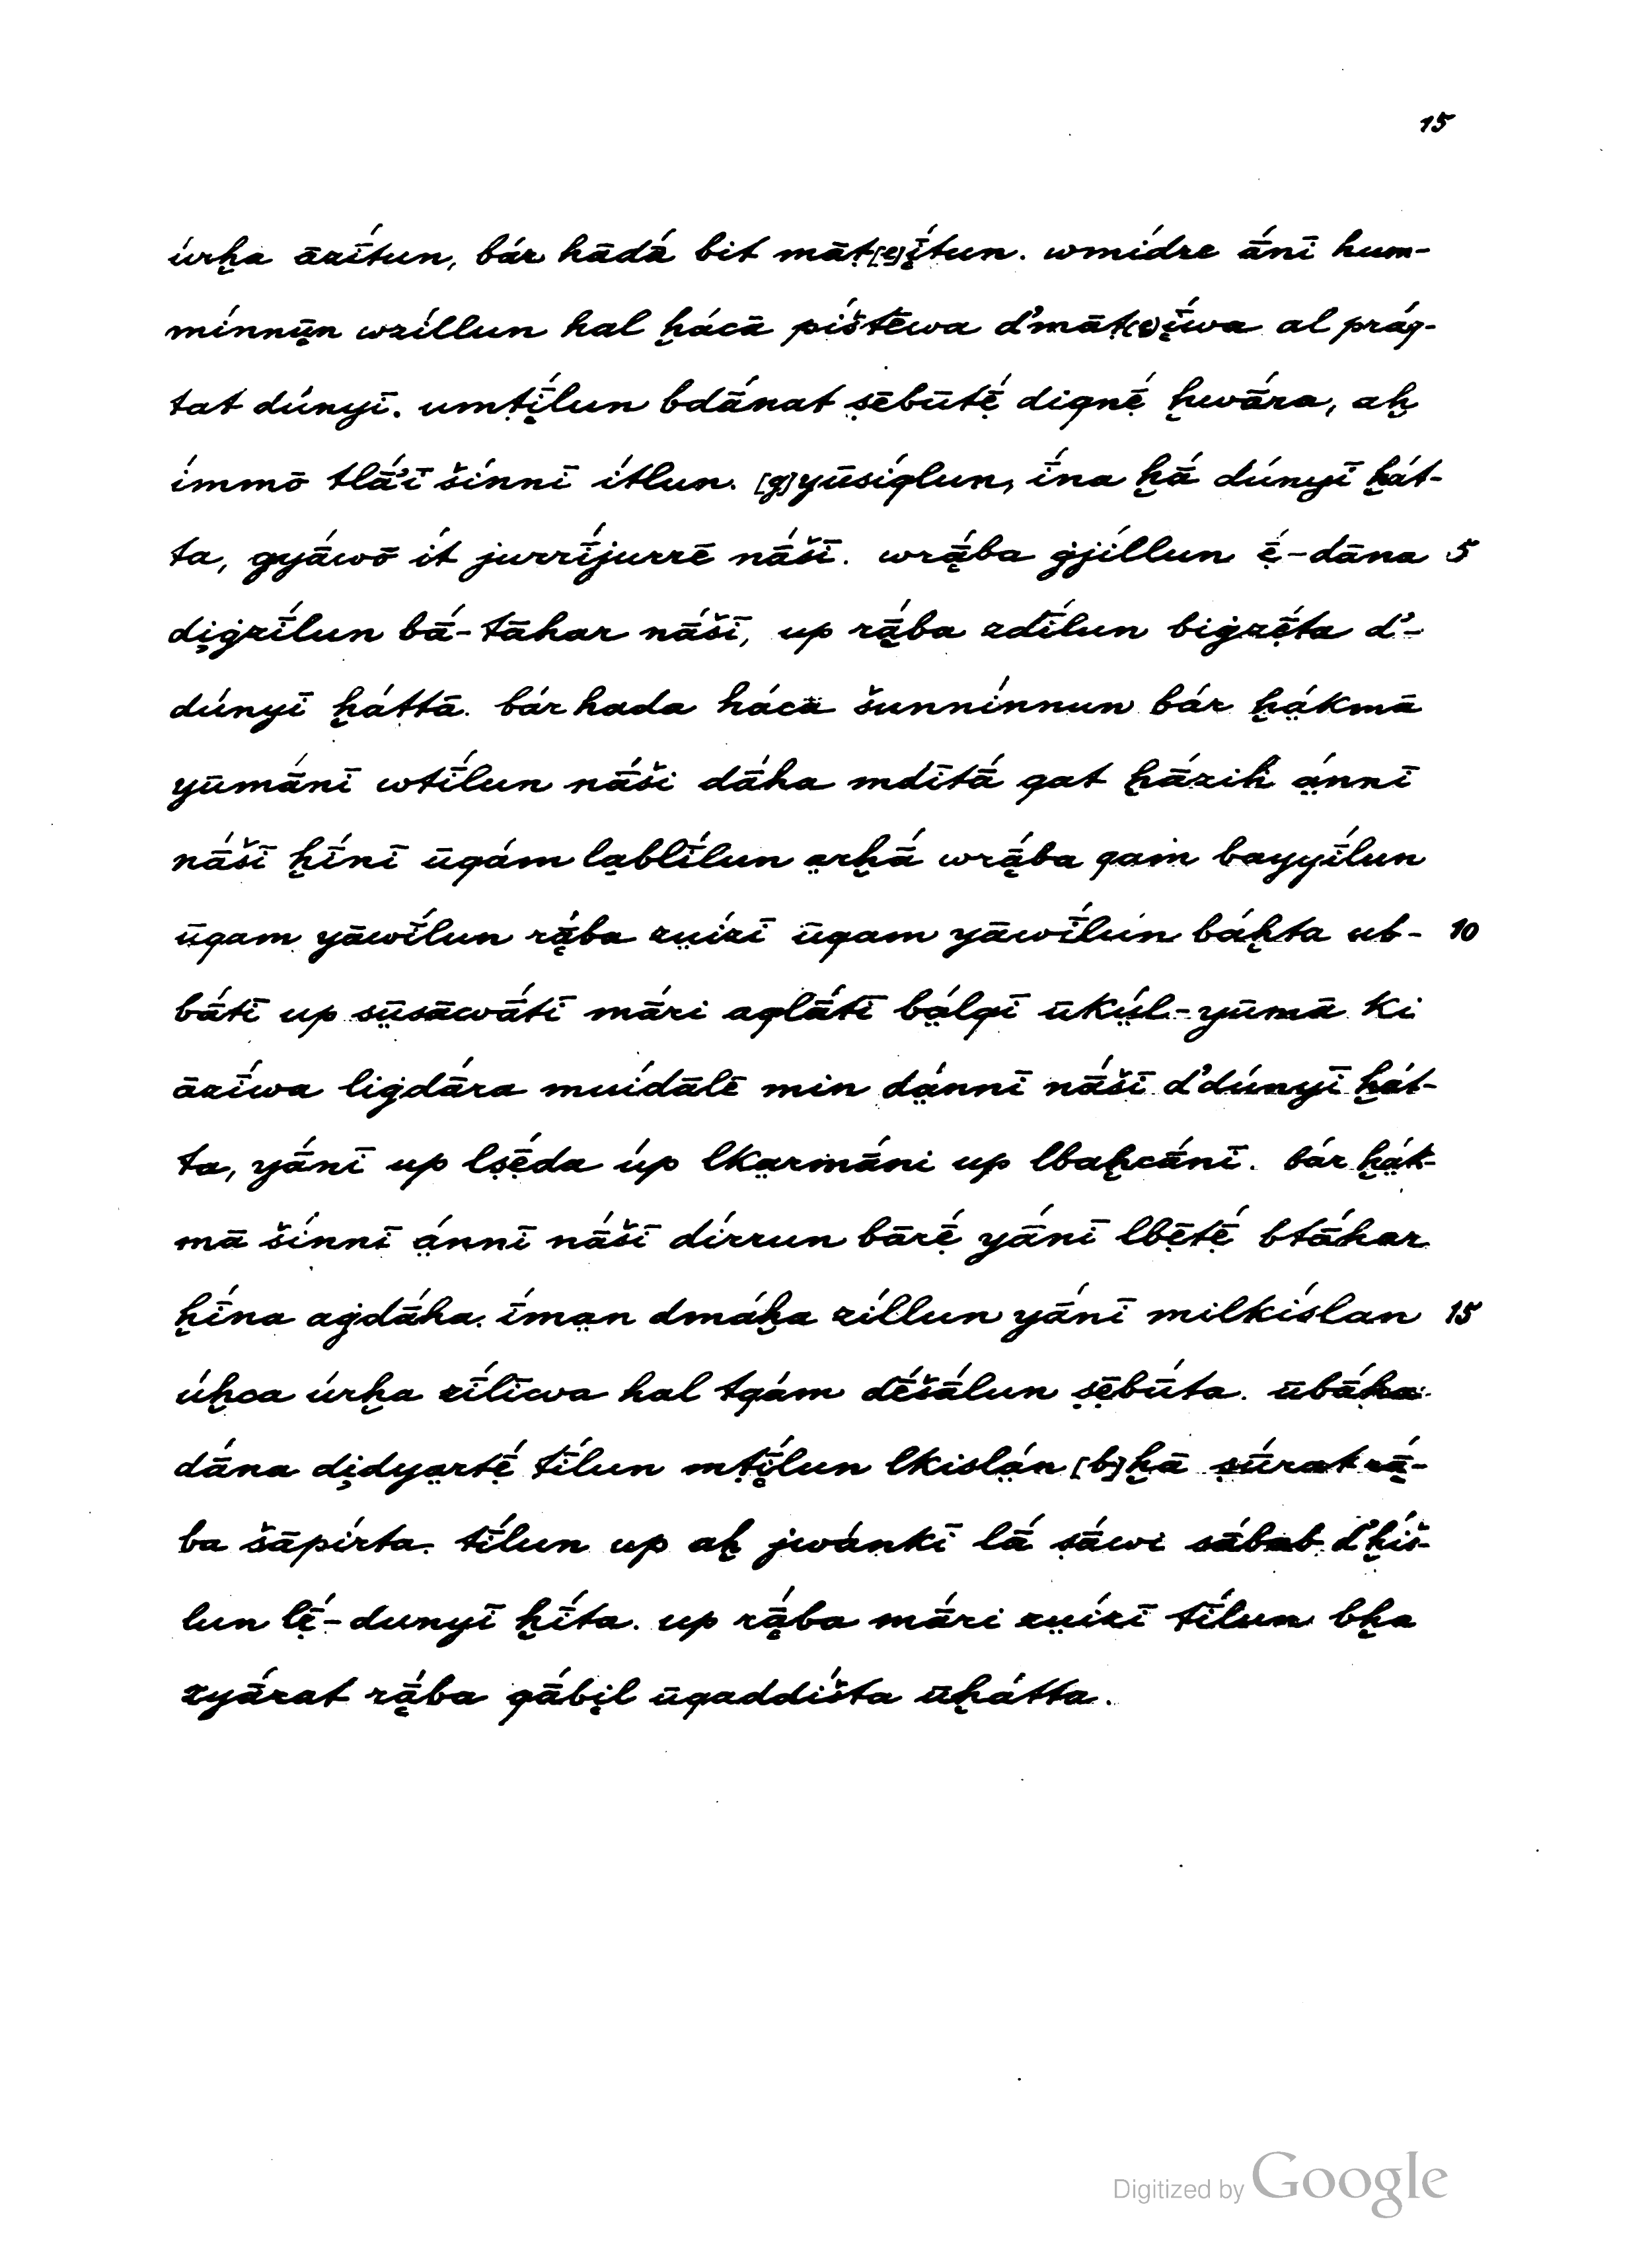 15
úrḫa āzī́tun, bár hādā́ bit māṭ[ə]ī̭́tun. wmídre ā́nī hum-
mínnṳ̄n wzíllun hal ḫácā píštēwa d'māṭ(ə)ī̭́wa al prág-
tat dúnyī. umṭī̭́lun bdā́nat ṣēbūtẹ̄́ diqnẹ̄́ ḫwā́ra, aḫ
ímmō tlā́'ī šínnī ítlun. [g]yūsíqlun, ī́na ḫā́ dúnyī ḫát-
ta, gyā́wō ít jurrī́jurrē nā́šī. wrā̭́ba ġjíllun ẹ̄́-dāna 5
di̭ġzī́lun bā́-tāhar nā́šī, up rā̭́ba zdī́lun biġzẹ̄́ta d'-
dúnyī ḫáttā. bár hada hácā šunnínnun bár ḫä́kmā
yūmā́nī wtī́lun nā́ši dā́ha mdītā́ qat ḫā́zih ä́nnī
nā́šī ḫī́nī ūqám la̭blī́lun a̤rḫā́ wrā̭́ba qam bayyī́lun
ūqam yāwī́lun rā̭́ba zṳízī ūqam yāwī́lun báḫta ub-
10
bā́tī up sṳ̄sāwā́tī mā́ri aqlā́tī bä́lqī ūkṳ́l-yūmā ki
āzī́wa liġdā́ra muídālē min dä́nnī nā́šī d'dúnyī ḫát-
ta, yā́nī up lṣẹ̄́da úp lka̤rmā́ni up lbaḫcā́nī. bár ḫä́k-
mā šínnī ä́nnī nā́šī dírrun bārẹ̄́ yā́nī lbẹ̄tẹ̄́ btā́har
ḫī́na aġdā́ha. ī́ma̤n dmáḫa zíllun yā́nī milkíslan 15
úḫca úrḫa zī́līwa hal tqám dḗšā́lun ṣẹ̄bū́ta. ūbā́ha
dā́na di̭dya̤rtẹ̄́ tī́lun mṭī̭́lun lkislä́n [b]ḫā ṣū́rat rā̭́-
ba šāpírta. tī́lun up aḫ jwánkī lā́ ṣā́wi sábab d'ḫíš-
lun lẹ̄́-dunyī ḫī́ta. up rā̭́ba mā́ri zṳízī tī́lun bḫa
zyā́rat rā̭́ba qābi̭l ūqaddíšta ūḫátta.
Digitized by Google